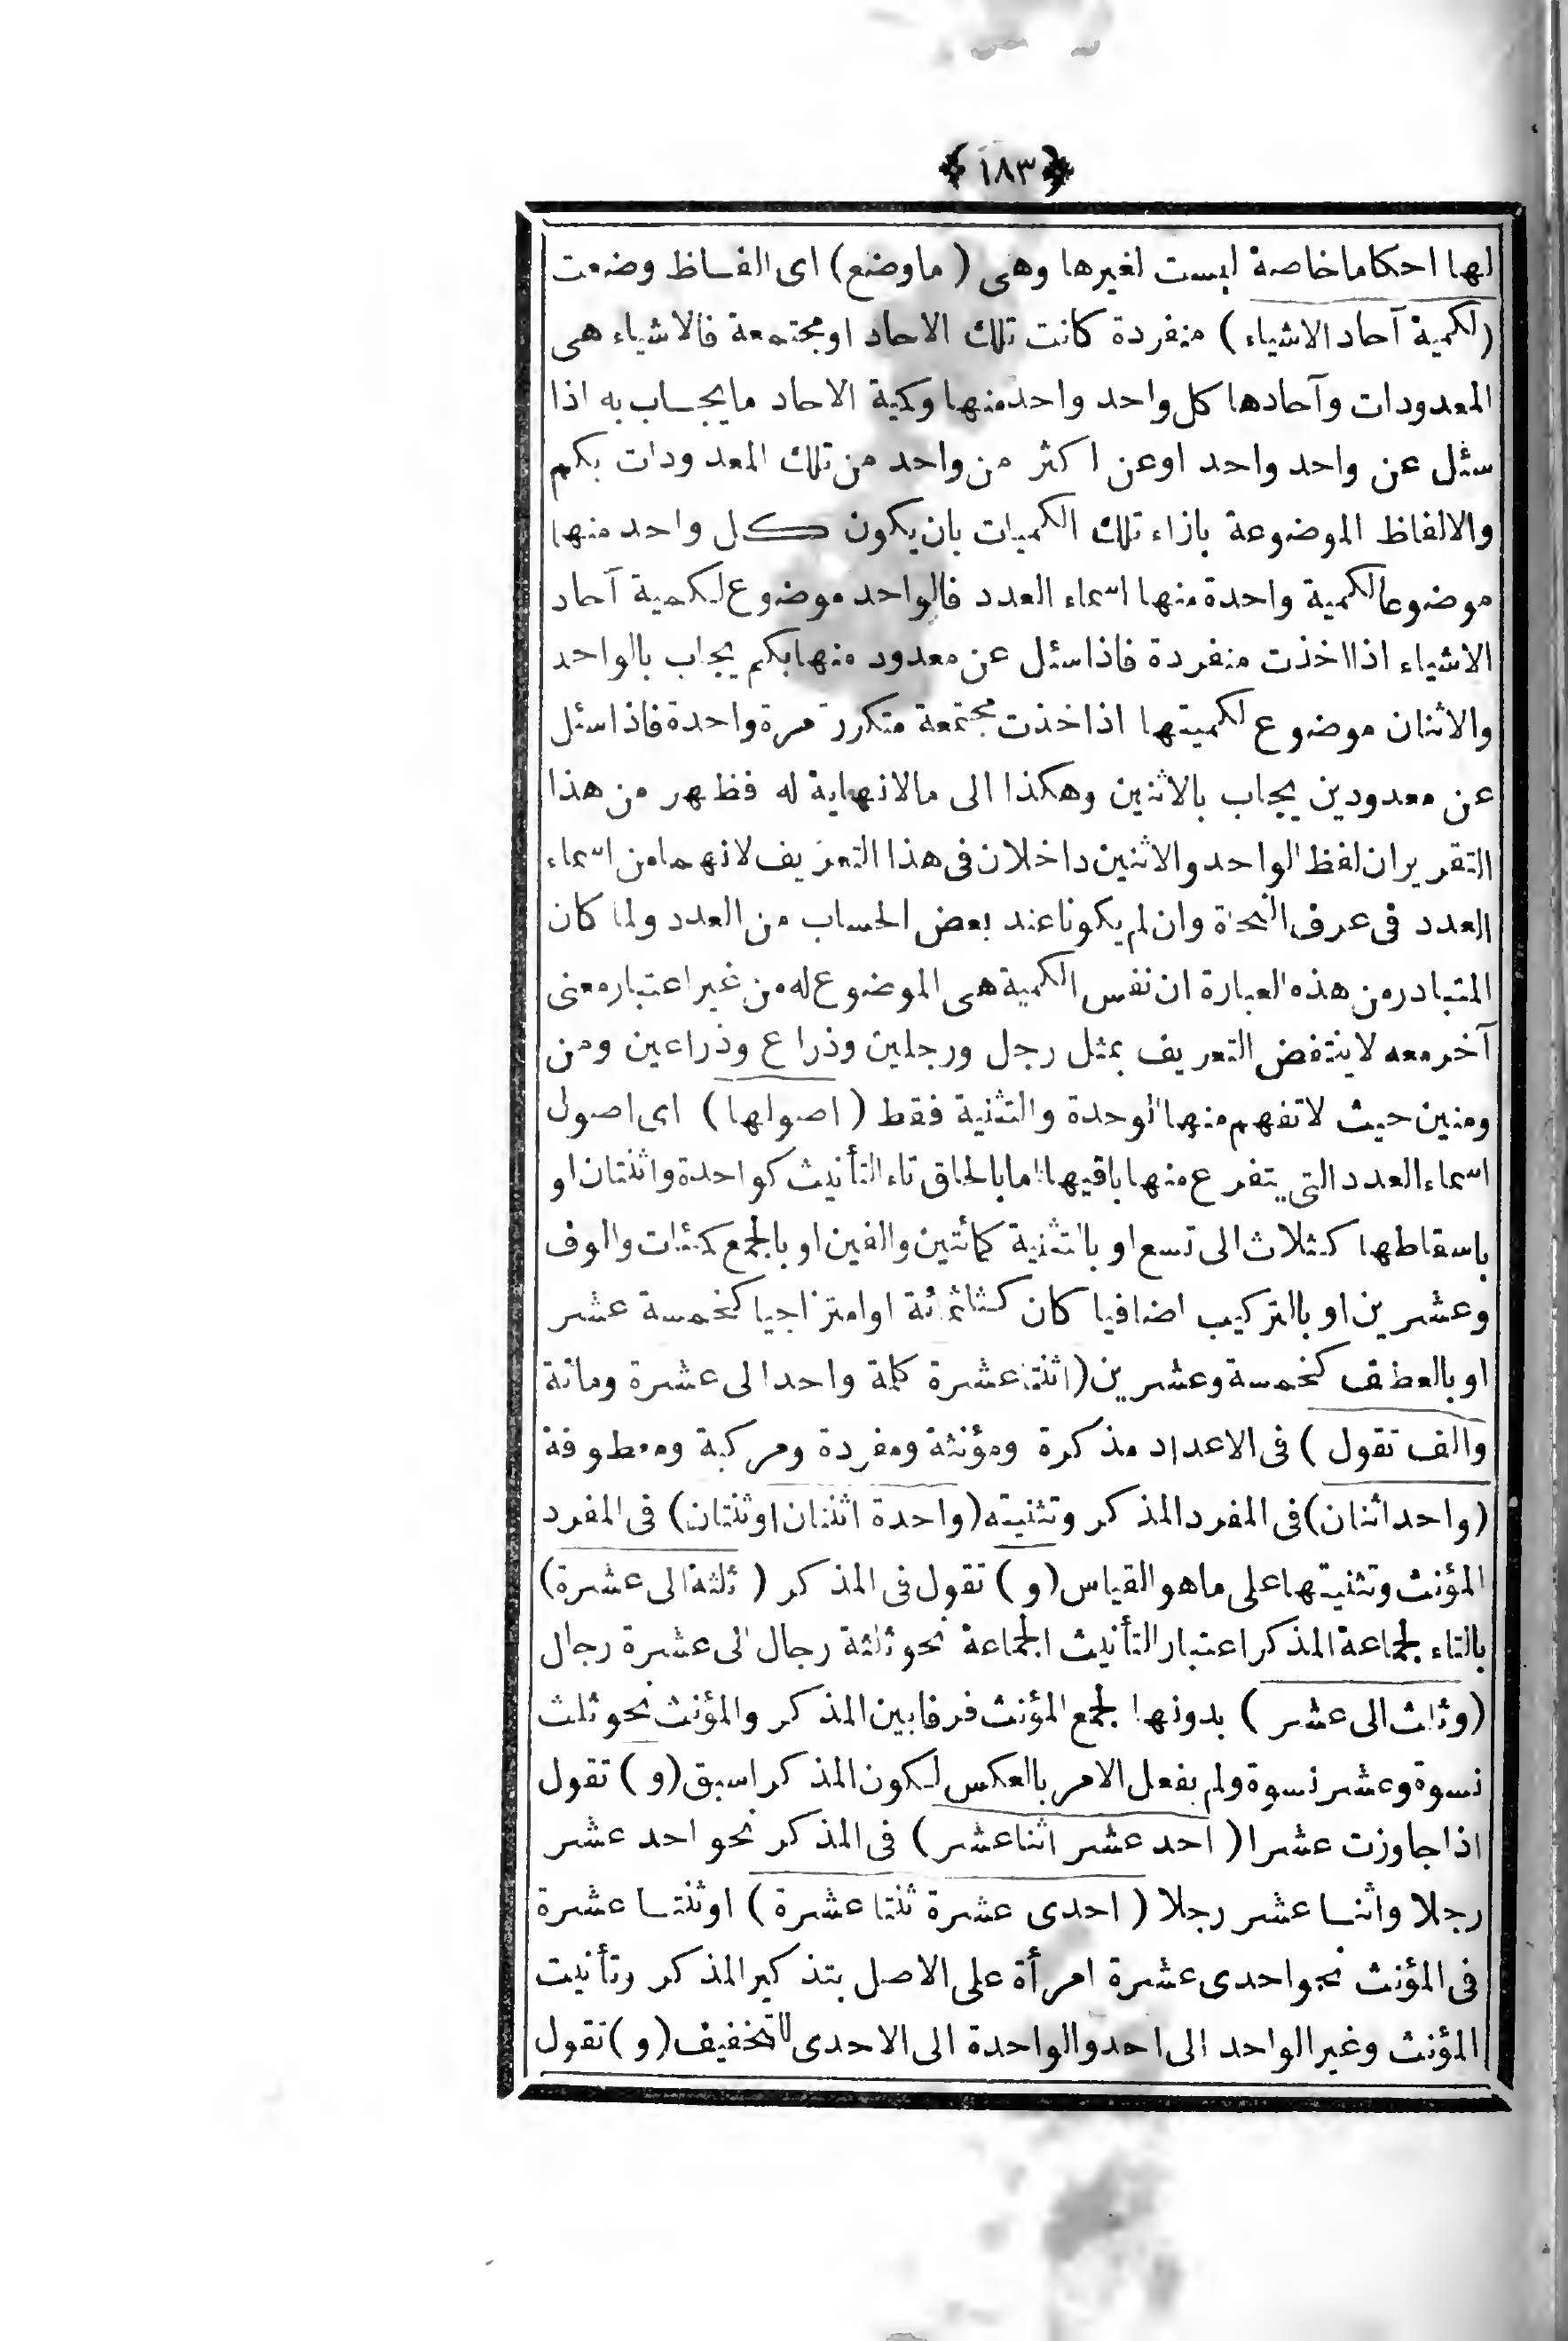 ﴿١٨٣﴾
لها احكاما خاصة ليست لغيرها وهى ( ماوضع) اى الفاظ وضعت
(لكمية آحاد الاشياء ) منفردة كانت تلك الاحاد او مجتمعة فالاشياء هى
المعدودات وآحادها كل واحد واحد منها وكمية الاحاد ما يجاب به اذا
سئل عن واحد واحد او عن اكثر من واحد من تلك المعدودات بكم
والالفاظ الموضوعة بازاء تلك الكميات بان يكون كل واحد منها
موضوعا لكمية واحدة منها اسماء العدد فالواحد موضوع لكمية آحاد
الاشياء اذا اخذت منفردة فاذا سئل عن معدود منها بكم يجاب بالواحد
والاثنان موضوع لكميتها اذا خذت مجتمعة متكررة مرة واحدة فاذا سئل
عن معدودين يجاب بالاثنين وهكذا الى مالا نهاية له فظهر من هذا
التقرير ان لفظ الواحد والاثنين داخلان فى هذا التعريف لانهما من اسماء
العدد فى عرف النحاة وان لم يكونا عند بعض الحساب من العدد ولما كان
المتبادر من هذه العبارة ان نفس الكمية هى الموضوع له من غير اعتبار معنى
آخر معه لا ينتقض التعريف بمثل رجل ورجلين وذراع وذراعين ومن
ومنين حيث لا تفهم منها الوحدة والتثنية فقط ( اصولها ) اى اصول
اسماء العدد التى يتفرع منها باقيها اما بالحاق تاء التأنيث كواحدة واثنتان او
باسقاطها كثلاث الى تسع او بالتثنية كمأتين والفين او بالجمع كمئات والوف
وعشرين او بالتركيب اضافيا كان كثلثمائة او امتزاجيا كخمسة عشر
او بالعطف كخمسة وعشرين (اثنتا عشرة كلمة واحد الى عشرة ومائة
والف تقول ) فى الاعداد مذكرة ومؤنثة ومفردة ومركبة ومعطوفة
(واحد اثنان) فى المفرد المذكر وتثنيته (واحدة اثنتان او ثنتان) فى المفرد
المؤنث وتثنيتها على ما هو القياس (و ) تقول فى المذكر ( ثلثة الى عشرة)
بالتاء لجماعة المذكر اعتبار التأنيث الجماعة نحو ثلثة رجال الى عشرة رجال
(وثلث الى عشر ) بدونها لجمع المؤنث فرقا بين المذكر والمؤنث نحو ثلث
نسوة وعشر نسوة ولم يفعل الامر بالعكس لكون المذكر اسبق (و ) تقول
اذا جاوزت عشرا ( احد عشر اثنا عشر ) فى المذكر نحو احد عشر
رجلا واثنا عشر رجلا ( احدى عشرة ثنتا عشرة ) او ثنتا عشرة
فى المؤنث نحو احدى عشرة امرأة على الاصل بتذكير المذكر وتأنيث
المؤنث وغير الواحد الى احد والواحدة الى الاحدى للتخفيف (و ) تقول